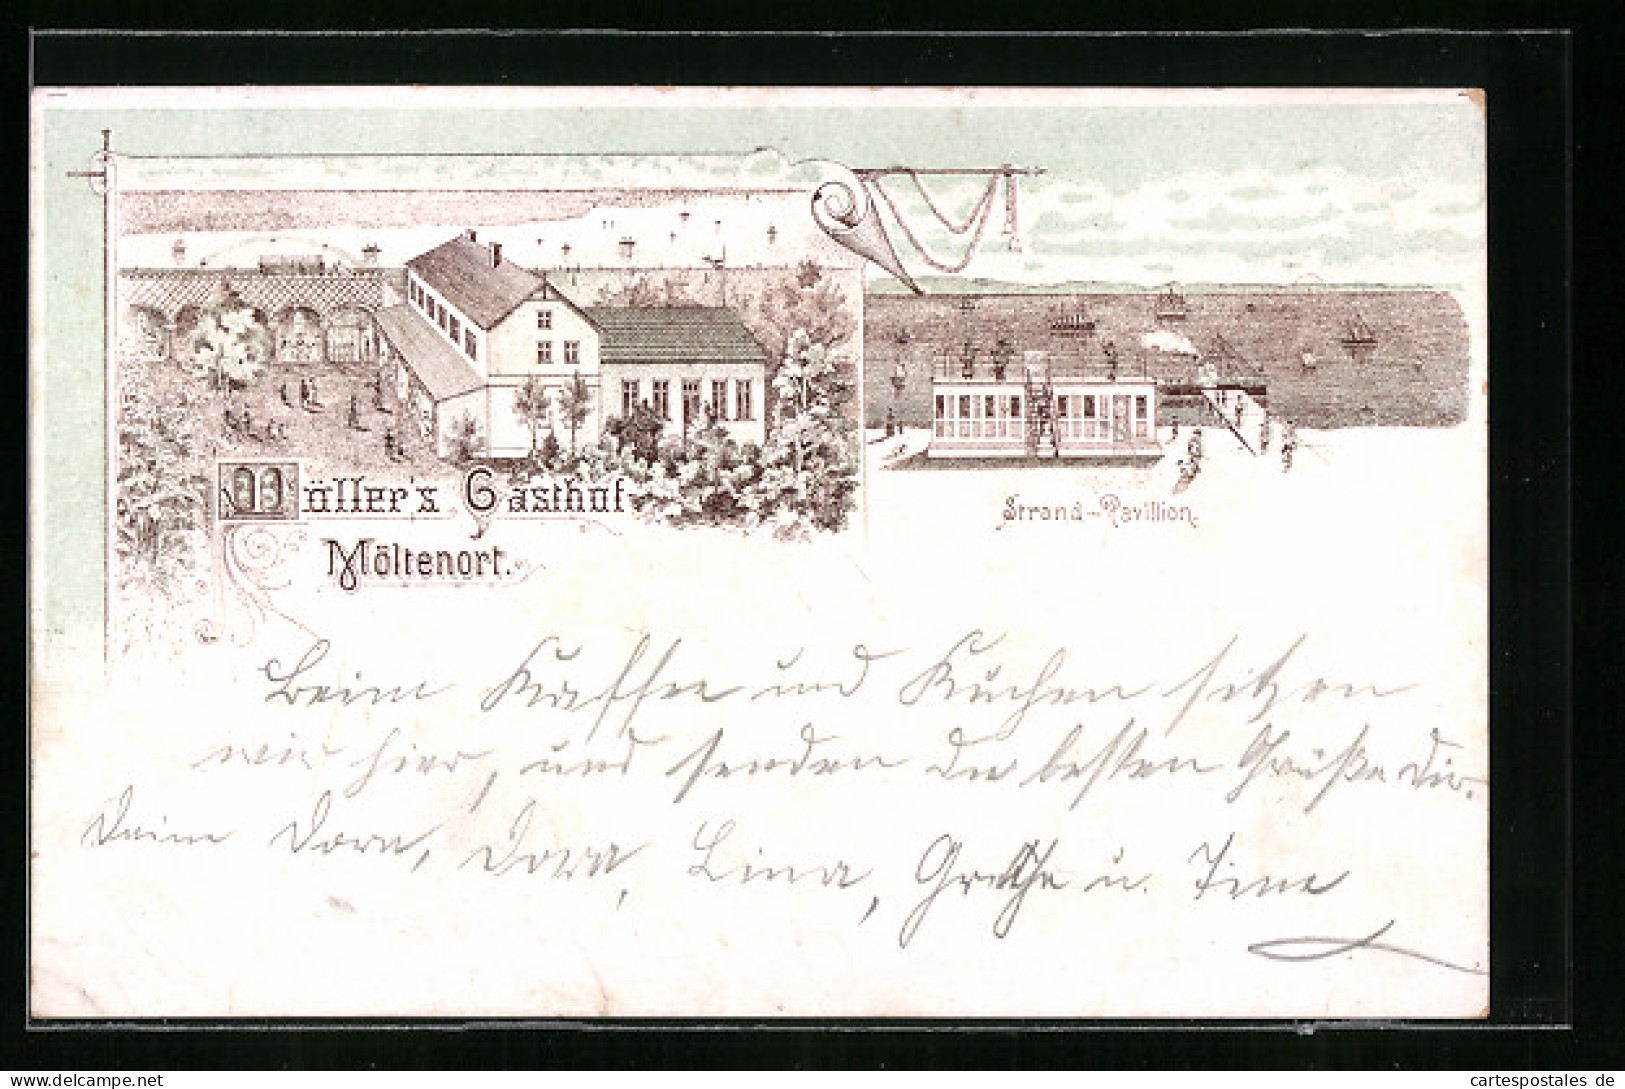 Müller's Gasthof
Möltenort.
Strand-Pavillion.
Beim Kaffee und Kuchen sitzen
wir hier, und senden die besten Grüße Dir.
Deine Dora, Dora, Lina, Grethe u. Tine
cartespostales.de
www.delcampe.net